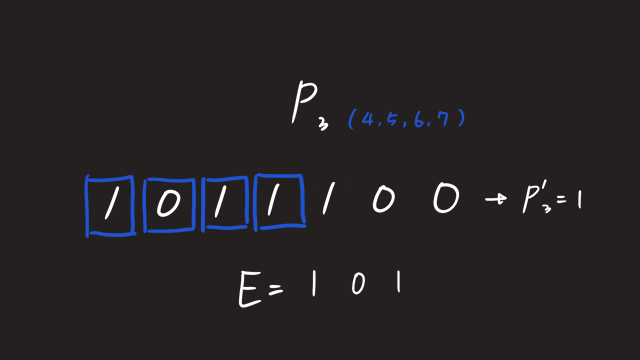 P₃ (4.5,6.7)
1 0 1 1 1 0 0 → P₃' = 1
E = 1 0 1